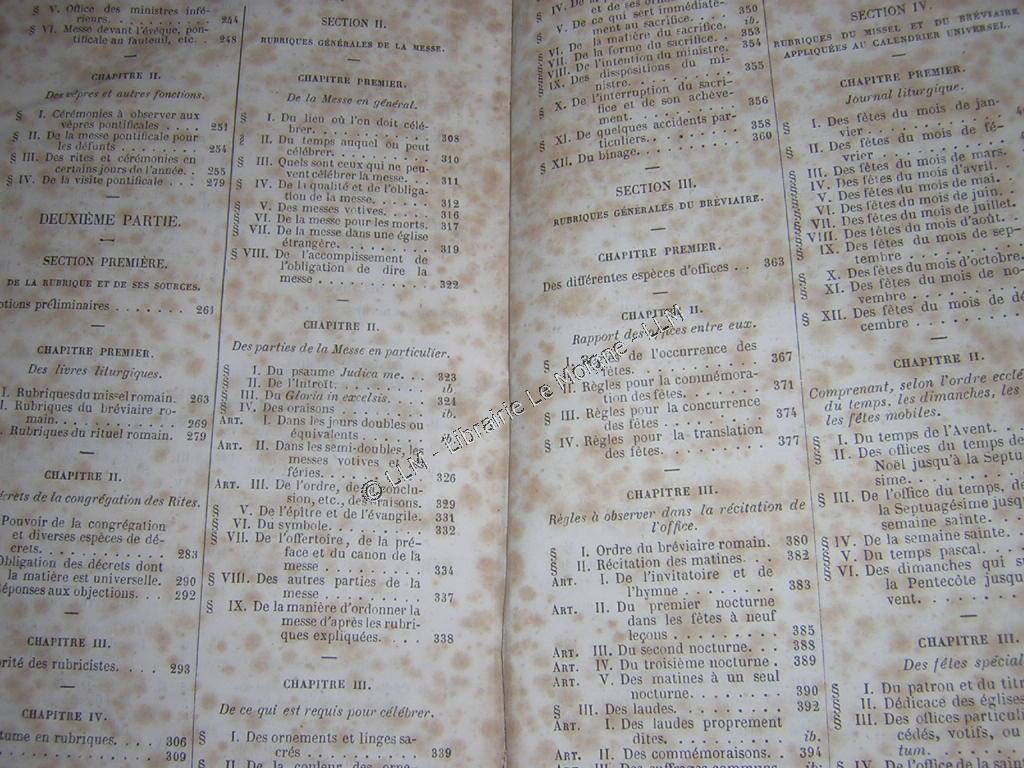 § V. Office des ministres infé-
rieurs. . . . . . . . . . . . 244
§ VI. Messe devant l'évêque, pon-
tificale au fauteuil, etc. . 248
CHAPITRE II.
Des vêpres et autres fonctions.
§ I. Cérémonies à observer aux
vêpres pontificales . . . . 251
§ II. De la messe pontificale pour
les défunts . . . . . . . . 254
§ III. Des rites et cérémonies en
certains jours de l'année. . 255
§ IV. De la visite pontificale . . . 279
DEUXIÈME PARTIE.
SECTION PREMIÈRE.
DE LA RUBRIQUE ET DE SES SOURCES.
otions préliminaires . . . . . . 261
CHAPITRE PREMIER.
Des livres liturgiques.
I. Rubriques du missel romain. 263
I. Rubriques du bréviaire ro-
main. . . . . . . . . . . . 269
. Rubriques du rituel romain. 279
CHAPITRE II.
écrets de la congrégation des Rites.
Pouvoir de la congrégation
et diverses espèces de dé-
crets. . . . . . . . . . . . 283
Obligation des décrets dont
la matière est universelle. 290
Réponses aux objections. . . . 292
CHAPITRE III.
orité des rubricistes. . . . . 293
CHAPITRE IV.
tume en rubriques. . . . . 306
. . . . . . . . . . . . 309
SECTION II.
RUBRIQUES GÉNÉRALES DE LA MESSE.
CHAPITRE PREMIER.
De la Messe en général.
§ I. Du lieu où l'on doit célé-
brer. . . . . . . . . . . . 308
§ II. Du temps auquel on peut
célébrer. . . . . . . . . . 310
§ III. Quels sont ceux qui ne peu-
vent célébrer la messe. . . . 311
§ IV. De la qualité et de l'obliga-
tion de la messe. . . . . . 312
§ V. Des messes votives. . . . . 316
§ VI. De la messe pour les morts. 317
§ VII. De la messe dans une église
étrangère. . . . . . . . . . 319
§ VIII. De l'accomplissement de
l'obligation de dire la
messe . . . . . . . . . . . 322
CHAPITRE II.
Des parties de la Messe en particulier.
§ I. Du psaume Judica me. . . . 323
§ II. De l'Introït. . . . . . . . ib
§ III. Du Gloria in excelsis. . . . 324
§ IV. Des oraisons . . . . . . . ib.
ART. I. Dans les jours doubles ou
équivalents . . . . . . .
ART. II. Dans les semi-doubles, les
messes votives
féries. . . . . . . . . . . 326
ART. III. De l'ordre, de conclu-
sion, etc., des oraisons. 329
§ V. De l'épître et de l'évangile. 331
§ VI. Du symbole. . . . . . . . 332
§ VII. De l'offertoire, de la pré-
face et du canon de la
messe . . . . . . . . . . . 334
§ VIII. Des autres parties de la
messe . . . . . . . . . . . 337
§ IX. De la manière d'ordonner la
messe d'après les rubri-
ques expliquées. . . . . . 338
CHAPITRE III.
De ce qui est requis pour célébrer.
§ I. Des ornements et linges sa-
crés . . . . . . . . . . . 339
§ II. De la couleur des orne-
§ V. De ce qui sert immédiate-
ment au sacrifice. . . . . 350
§ VI. De la matière du sacrifice. . ib.
§ VII. De la forme du sacrifice. . 353
§ VIII. De l'intention du ministre. 354
§ IX. Des dispositions du mi-
nistre. . . . . . . . . . . 355
§ X. De l'interruption du sacri-
fice et de son achève-
ment. . . . . . . . . . . . 356
§ XI. De quelques accidents par-
ticuliers. . . . . . . . . . 358
§ XII. Du binage. . . . . . . . . 360
SECTION III.
RUBRIQUES GÉNÉRALES DU BRÉVIAIRE.
CHAPITRE PREMIER.
Des différentes espèces d'offices . . 363
CHAPITRE II.
Rapport des offices entre eux.
§ I. Règles de l'occurrence des
fêtes. . . . . . . . . . . 367
§ II. Règles pour la commémora-
tion des fêtes. . . . . . . 371
§ III. Règles pour la concurrence
des fêtes . . . . . . . . . 374
§ IV. Règles pour la translation
des fêtes. . . . . . . . . 377
CHAPITRE III.
Règles à observer dans la récitation de
l'office.
§ I. Ordre du bréviaire romain. 380
§ II. Récitation des matines. . . 382
ART. I. De l'invitatoire et de
l'hymne . . . . . . . . . . 383
ART. II. Du premier nocturne
dans les fêtes à neuf
leçons . . . . . . . . . . 385
ART. III. Du second nocturne. . . 388
ART. IV. Du troisième nocturne . 389
ART. V. Des matines à un seul
nocturne. . . . . . . . . . 390
§ III. Des laudes. . . . . . . . 392
ART. I. Des laudes proprement
dites. . . . . . . . . . . ib.
ART. II. Des commémoraisons. . . 394
SECTION IV.
RUBRIQUES DU MISSEL ET DU BRÉVIAIRE
APPLIQUÉES AU CALENDRIER UNIVERSEL.
CHAPITRE PREMIER.
Journal liturgique.
§ I. Des fêtes du mois de jan-
vier . . . . . . . . . . .
§ II. Des fêtes du mois de fé-
vrier . . . . . . . . . . .
§ III. Des fêtes du mois de mars.
§ IV. Des fêtes du mois d'avril. .
§ V. Des fêtes du mois de mai.
§ VI. Des fêtes du mois de juin. .
§ VII. Des fêtes du mois de juillet.
§ VIII. Des fêtes du mois d'août. .
§ IX. Des fêtes du mois de sep-
tembre . . . . . . . . . .
§ X. Des fêtes du mois d'octobre.
§ XI. Des fêtes du mois de no-
vembre . . . . . . . . . .
§ XII. Des fêtes du mois de dé-
cembre . . . . . . . . . .
CHAPITRE II.
Comprenant, selon l'ordre ecclé
du temps, les dimanches, les
les fêtes mobiles.
§ I. Du temps de l'Avent. . .
§ II. Des offices du temps de
Noël jusqu'à la Septu
sime. . . . . . . . .
§ III. De l'office du temps, de
la Septuagésime jusq
semaine sainte. . .
§ IV. De la semaine sainte. .
§ V. Du temps pascal. . . .
§ VI. Des dimanches qui s
la Pentecôte jusqu
vent. . . . . . . . .
CHAPITRE III.
Des fêtes spécial
§ I. Du patron et du titu
§ II. Dédicace des églises
§ III. Des offices particuli
cédés, votifs, ou
tum. . . . . . . .
§ IV. De l'office de la sain
© LLM - Librairie La Mofone - LLM